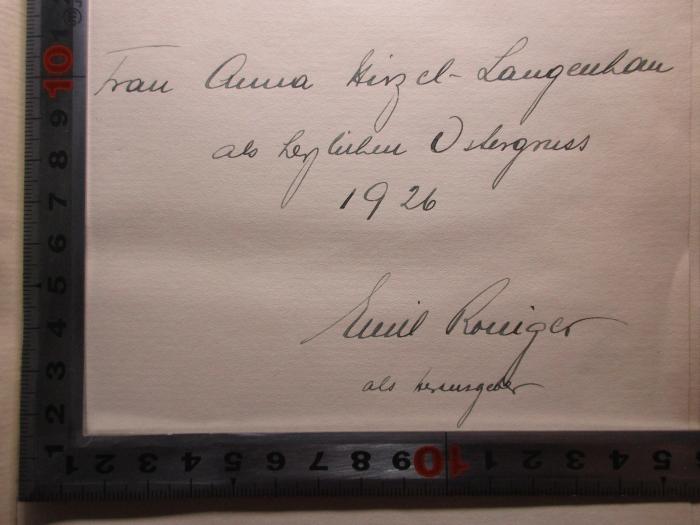 Frau Anna Hirzel-Langenhan
als herzlichen Ostergruss
1926
Emil Roniger
als Herausgeber
10 9 8 7 6 5 4 3 2 1
1 2 3 4 5 6 7 8 9 10 1 2 3 4 5